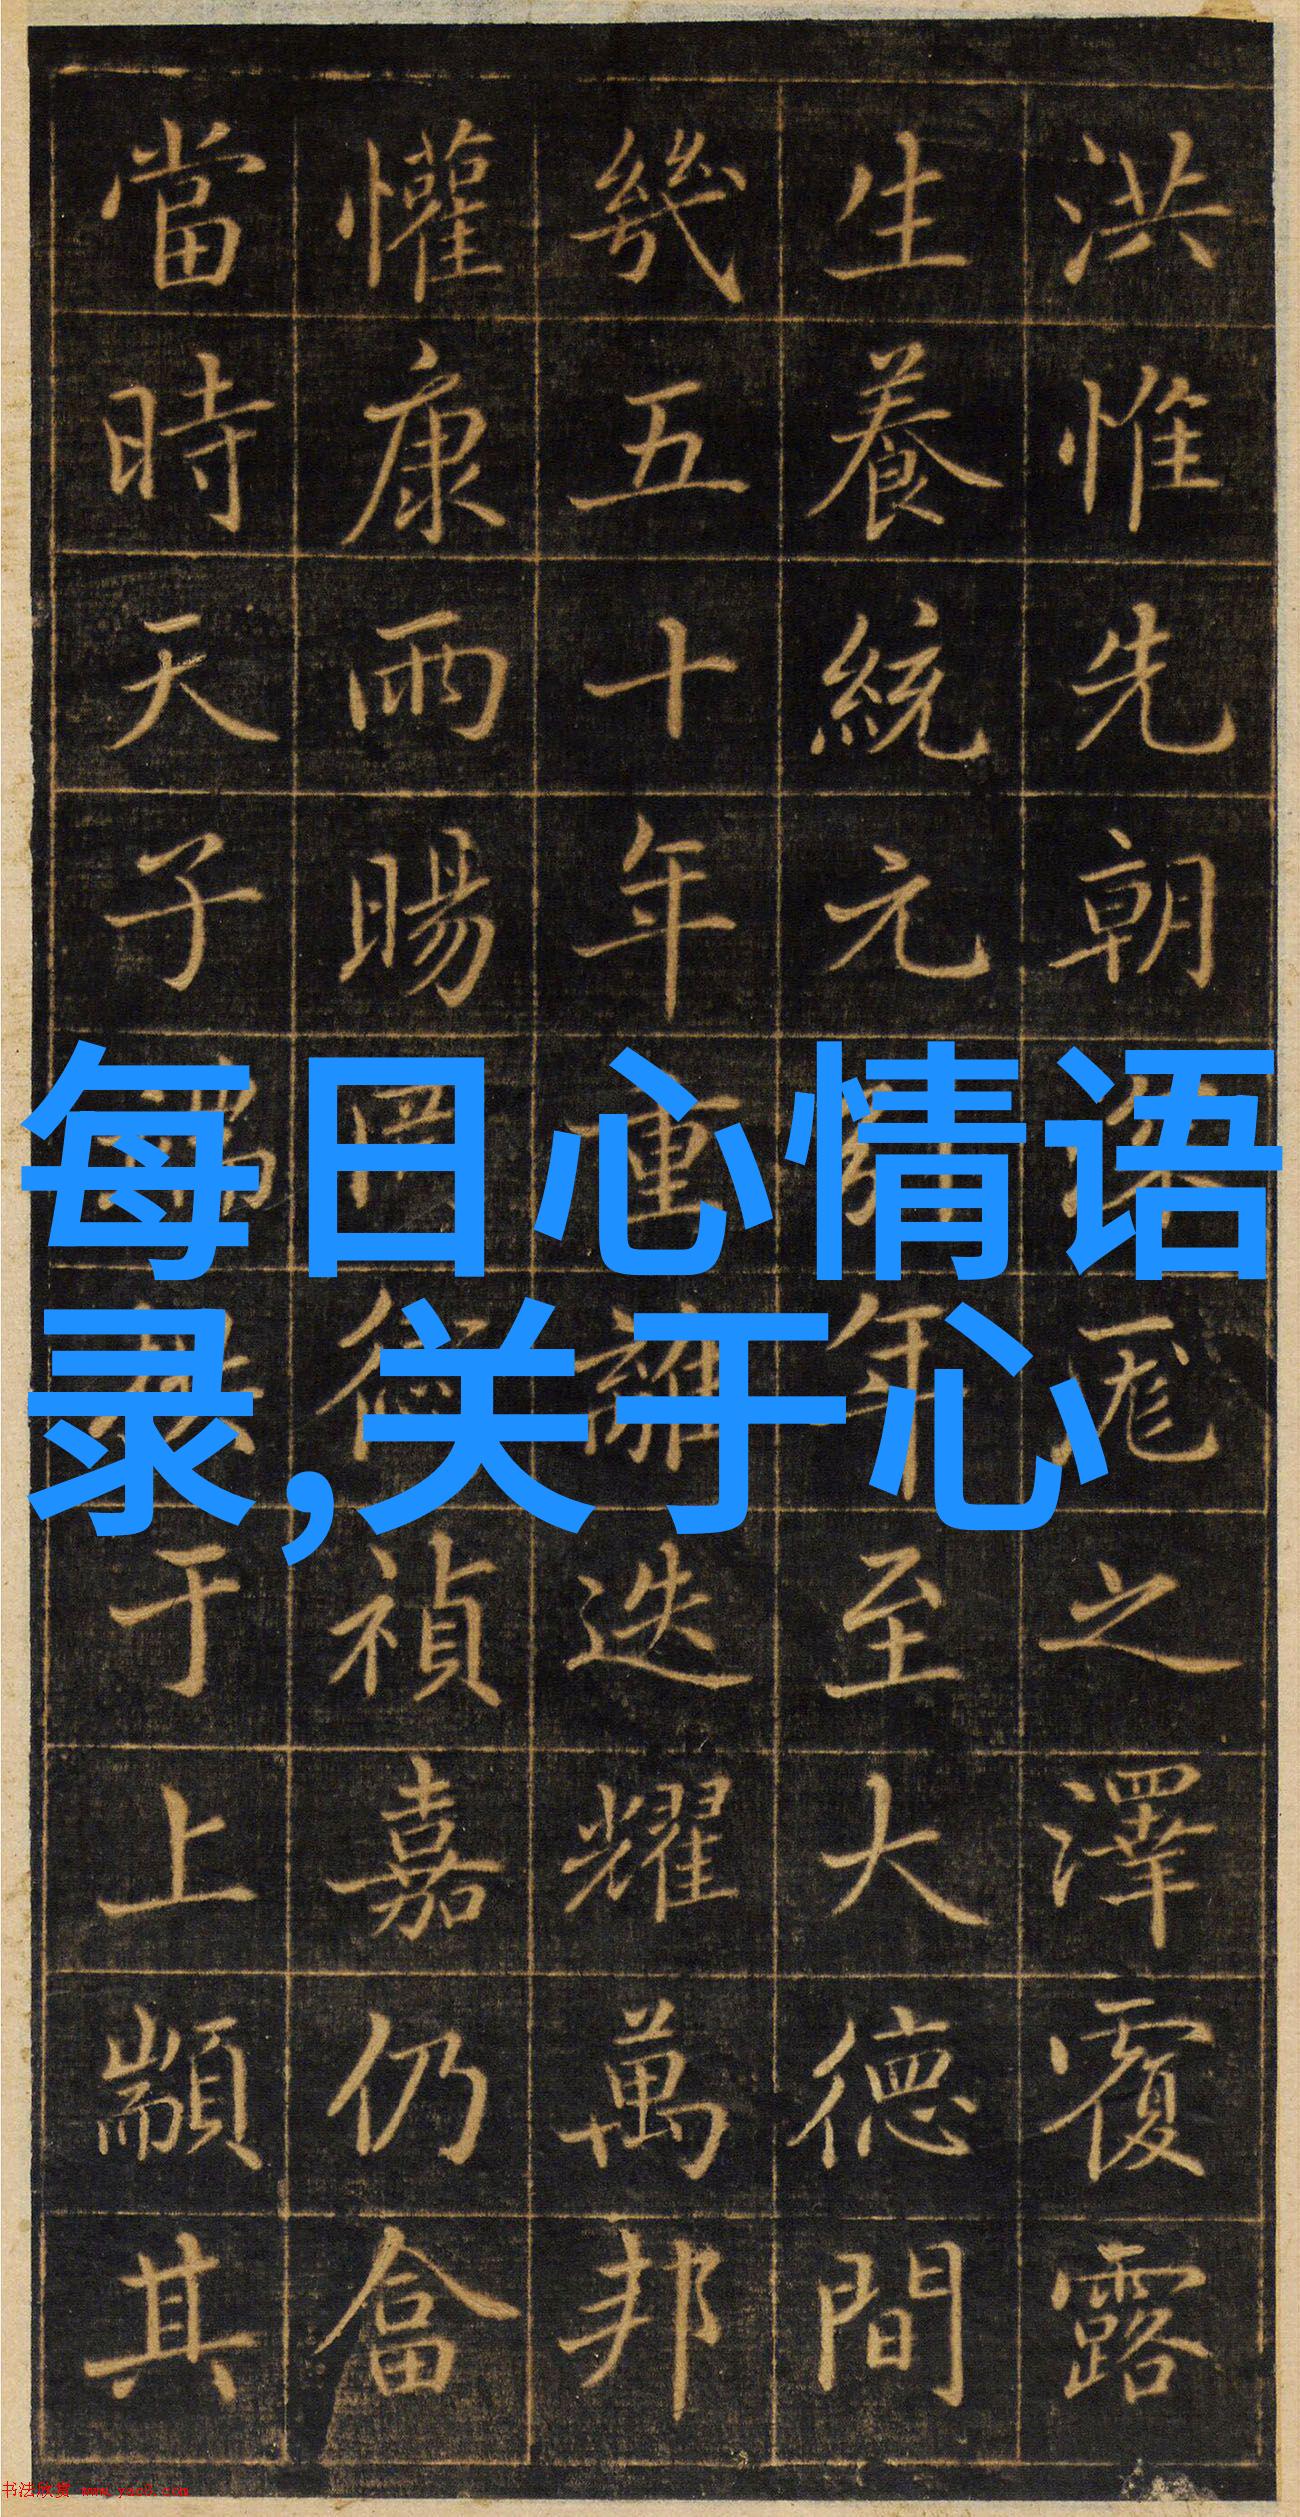 洪惟先朝厖之澤覆露
生養統元年至大德間
幾五十年重離迭耀萬邦
懽康雨暘禎嘉仍畣
當時天子于上顒其
每日心情语
录,关于心
书法欣赏 www.yac8.com